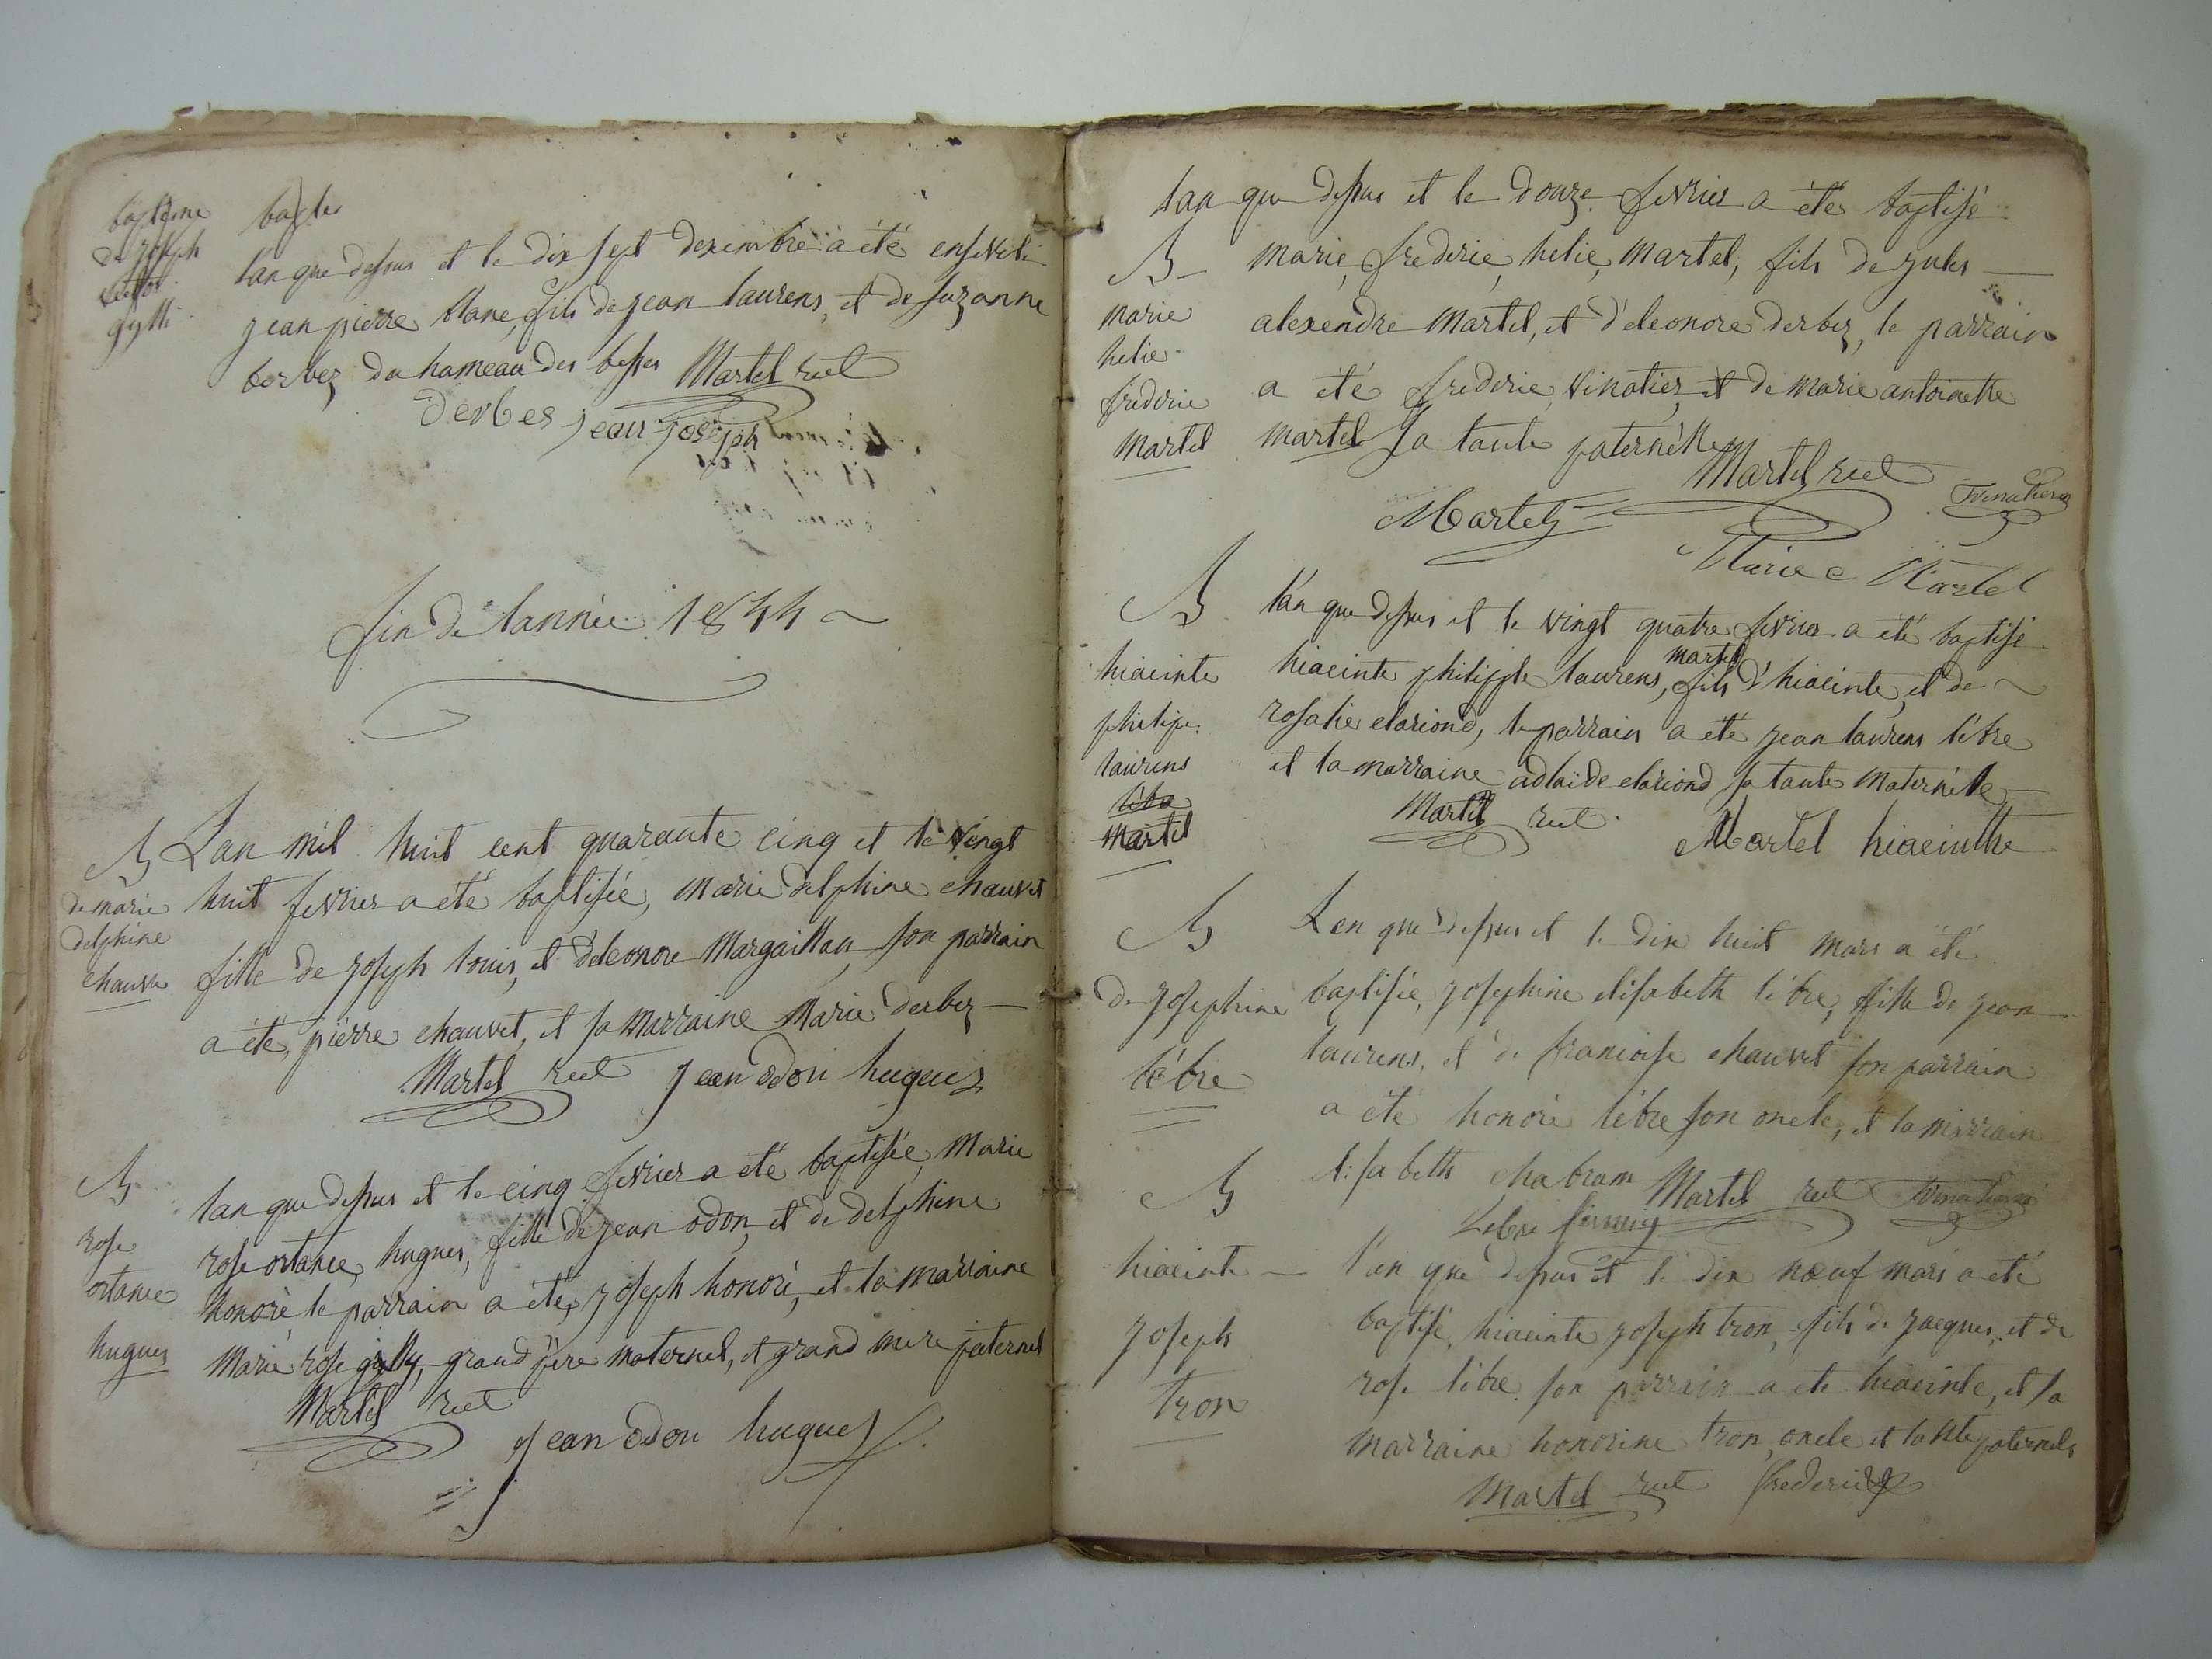 baptême
de joseph
victor
gylli
baptes
lan que dessus et le dix sept dexembre a été enseveli
jean pierre blanc, fils de jean laurens, et de suzanne
berbez du hameau des besses Martel rect
Derbes jean joseph
fin de lannèe 1844
B
de marie
delphine
chauvet
Lan mil huit cent quarante cinq et le vingt
huit fevrier a été baptisée, marie delphine chauvet
fille de joseph louis, et d'eleonore Margaillan, son parrain
a été, pierre chauvet, et sa marraine Marie derbez
Martel rect jean odon hugues
B
rose
ortance
hugues
lan que dessus et le cinq fevrier a eté baptisée, Marie
rose ortance, hugues, fille de jean odon, et de delphine
honoré le parrain a eté, joseph honoré, et la marraine
Marie rose gylly, grand père maternel, et grand mere paternel
Martel rect
jean odon hugues
lan que dessus et le douze fevrier a été baptisé
B
marie
helie
frederic
martel
marie, frederic, helie, Martel, fils de jules
alexendre Martel, et d'eleonore derbez, le parrain
a été frederic vinatier, et de marie antoinette
martel sa tante paternelle
Martel rect
Martel
Marie Martel
B
hiacinte
philipe
laurens
lèbre
martel
l'an que dessus et le vingt quatre fevrier a été baptisé
martel
hiacinte philipple laurens, fils d'hiacinte, et de
rosalie clariond, le parrain a eté jean laurens lèbre
et la marraine adlaide clariond sa tante maternèle
Martel rect
Martel hiacinthe
B
de josephine
lèbre
Lan que dessus et le dix huit mars a été
baptisée, josephine elisabeth lèbre, fille de jean
laurens, et de francoise chauvet son parrain
a eté honoré lèbre son oncle, et la marraine
elisabeth chabran Martel rect
B
hiacinte
joseph
tron
l'an que dessus et le dix nœuf mars a eté
baptisé, hiacinte joseph tron, fils de jacques, et de
rose lèbre son parrain a eté hiacinte, et sa
marraine honorine tron, oncle et tante paternels
Martel rect frederic